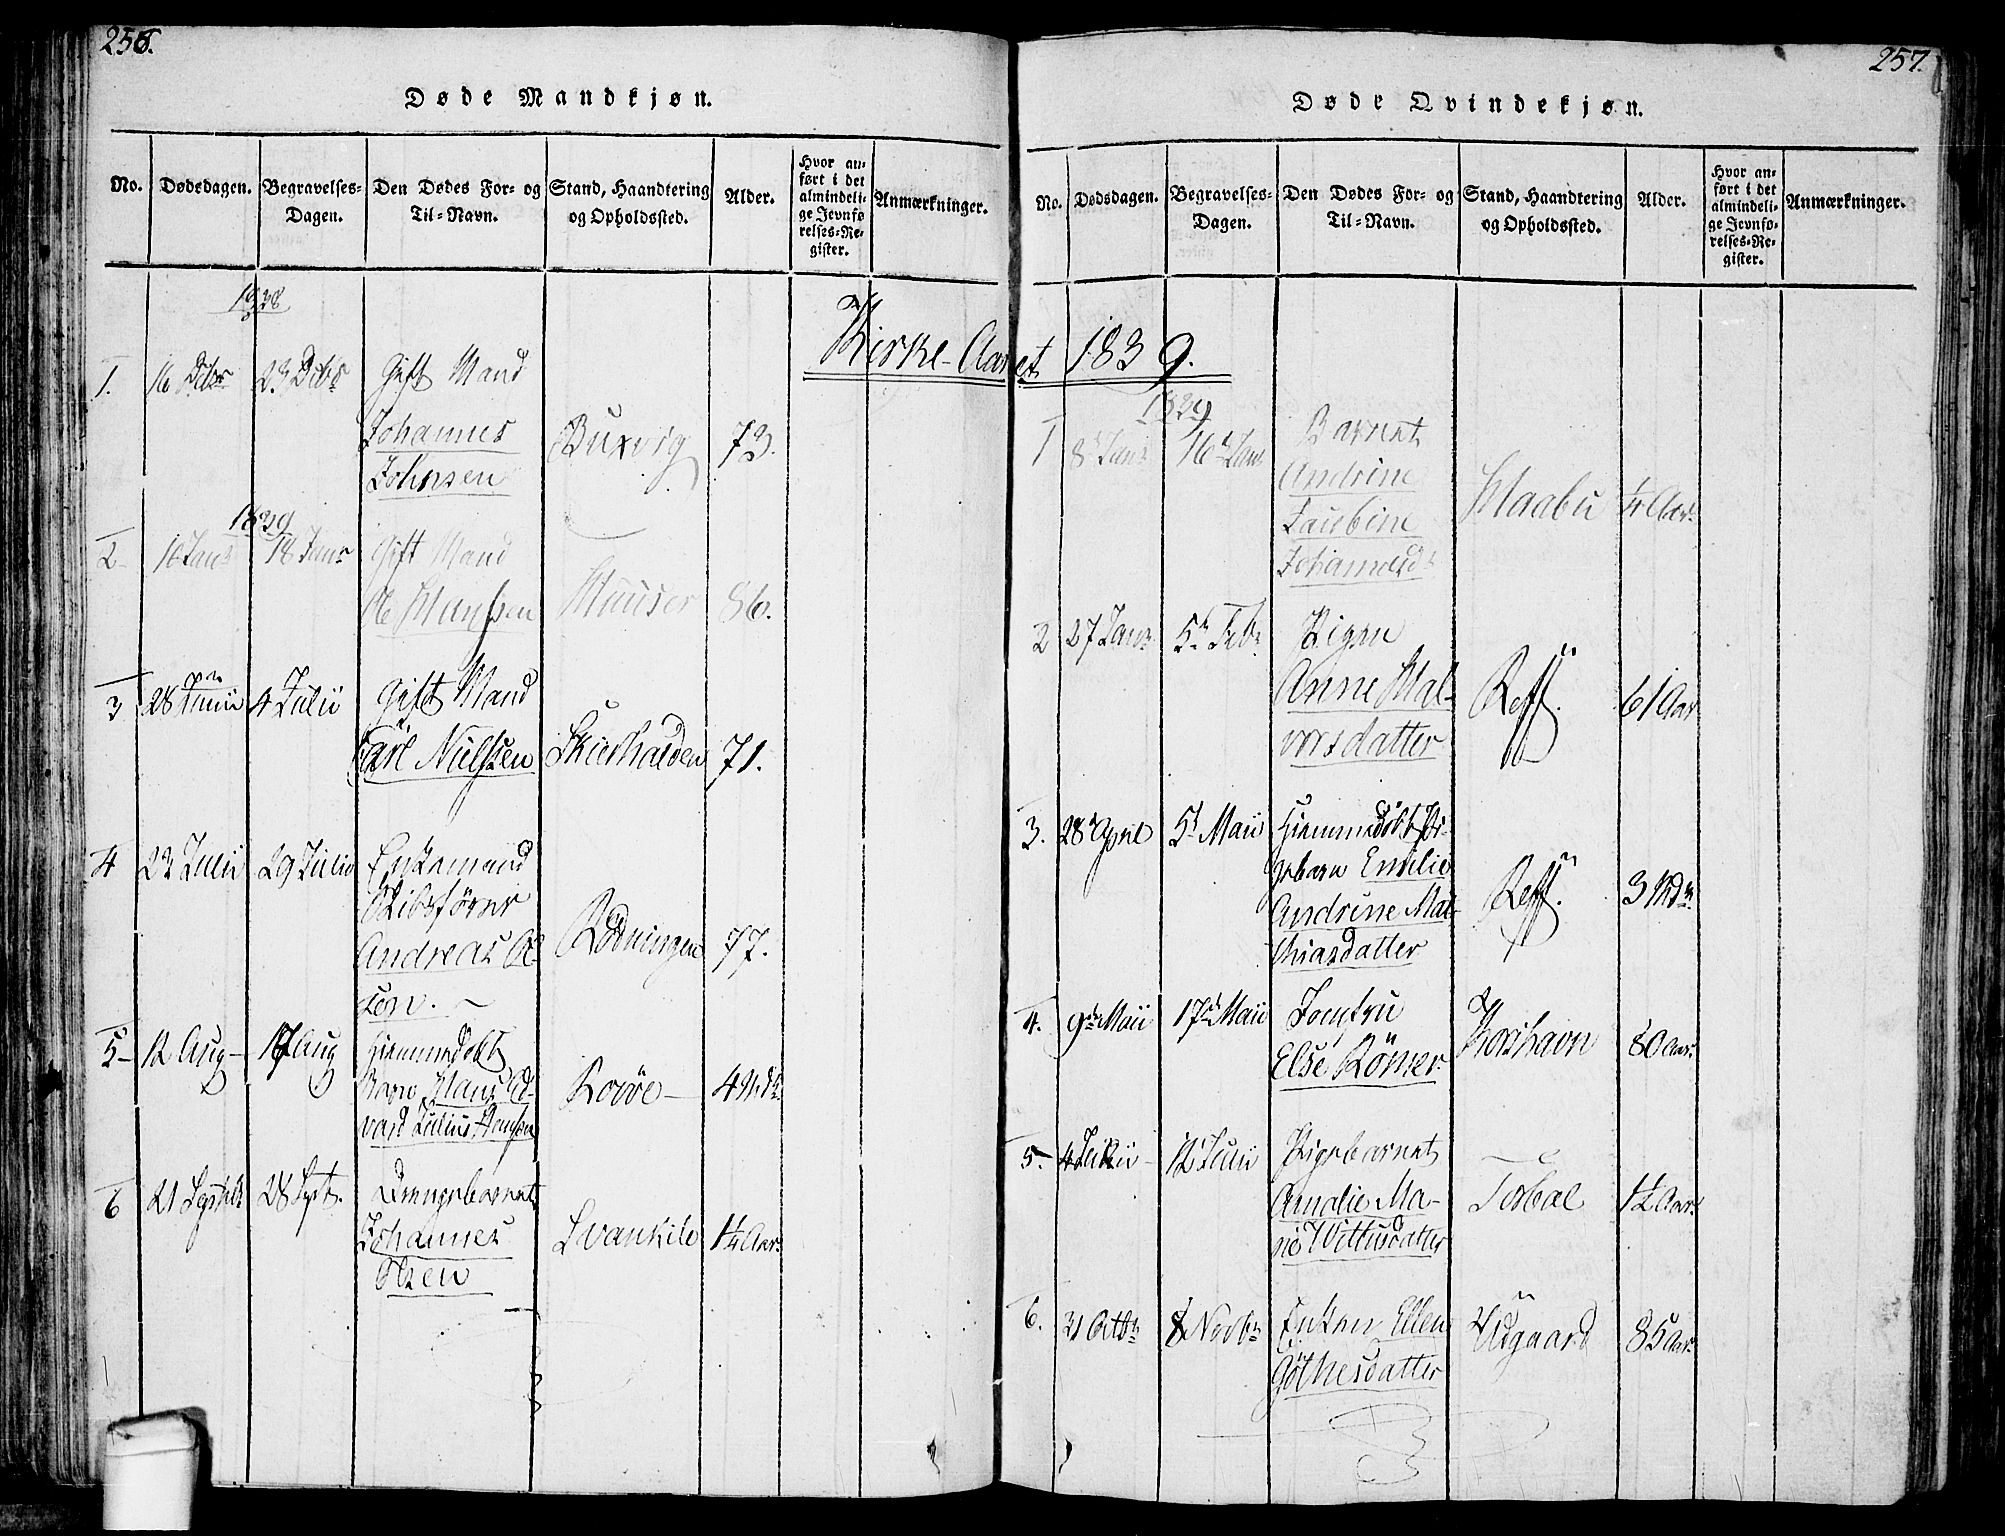 256.
Døde Mandkjøn.
No. Dødsdagen. Begravelses-Dagen. Den Dødes For- og Til-Navn. Stand, Haandtering og Opholdssted. Alder. Hvor anført i det almindelige Jevnførelses-Register. Anmærkninger.
1838
1. 16 Decbr 23 Decbr Gift Mand
Johannes Buxvig 73.
Johnsen
1839
2 16 Janr 18 Janr Gift Mand
Ole Hansen 86.
3 28 Junii 4 Julii Gift Mand
Carl Nielsen Skierhalden 71.
4 23 Julii 29 Julii Enkemand
Skibsfører
Andreas Ol- Rödningen 77.
sen.
5 12 Aug 17 Aug Hiemmedøbt
Barn Hans Ed- 4 Mdr
vard Julius Hansen
6 21 Septbr 28 Septr. Drengebarnet
Johannes Svankile 1¼ Aar
Olsen
Kirke-Aaret 1839.
257.
Døde Qvindekjøn.
No. Dødsdagen. Begravelses-Dagen. Den Dødes For- og Til-Navn. Stand, Haandtering og Opholdssted. Alder. Hvor anført i det almindelige Jevnførelses-Register. Anmærkninger.
1839
1 8 Janr 16 Janr Barnet
Andrine
Jacobine ¼ Aar
Johannesdr
2 27 Janr 5 Febr Pigen
Anne Hal- Reff. 61 Aar
vorsdatter
3. 28 April 5 Maii Hiemmedøbt Pi-
gebarn Emilie
Andrine Mat- Reff. 3 Mdr
thiasdatter
4. 9 Maii 17 Maii Jomfru
Else Römer Korshavn 80 Aar
5. 4 Julii 12 Julii Pigebarnet
Amalie Ma- ½ Aar
rie Wittusdatter
6. 31 Octbr 8 Novbr Enken Ellen
Göthesdatter Udgaard 85 Aar